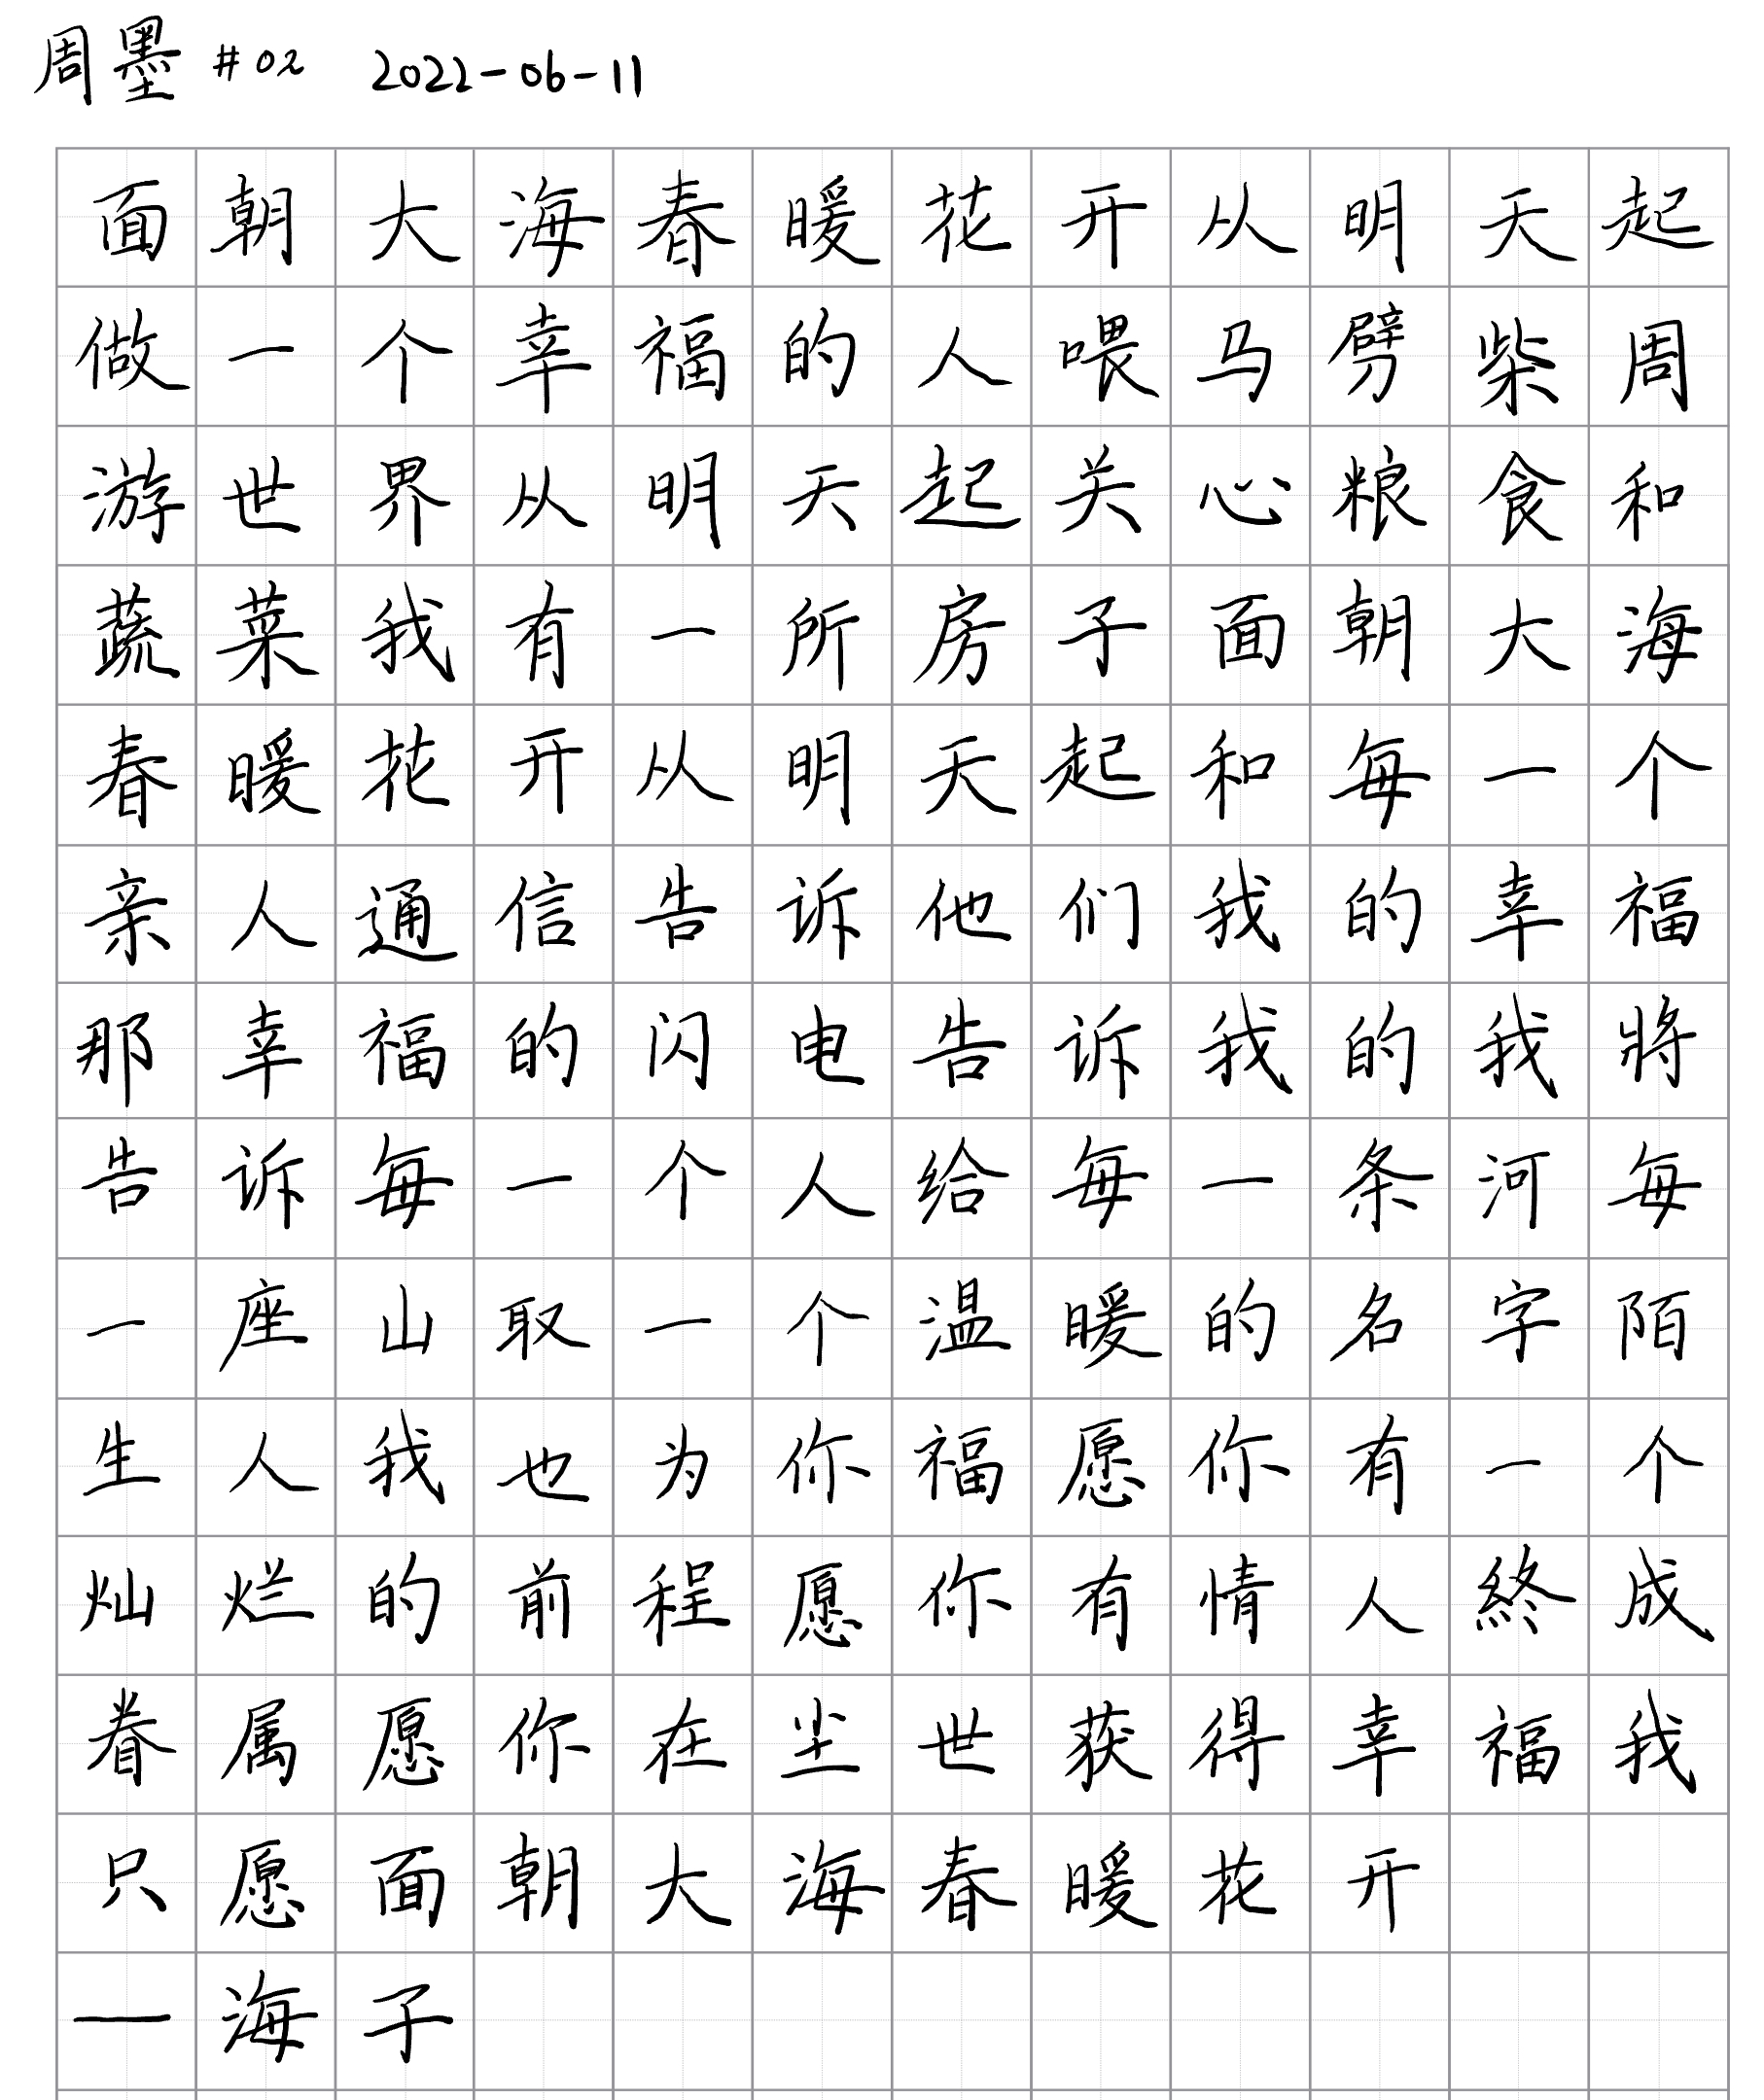 周墨 #02 2022-06-11
面朝大海春暖花开从明天起
做一个幸福的人喂马劈柴周
游世界从明天起关心粮食和
蔬菜我有一所房子面朝大海
春暖花开从明天起和每一个
亲人通信告诉他们我的幸福
那幸福的闪电告诉我的我將
告诉每一个人给每一条河每
一座山取一个温暖的名字陌
生人我也为你福愿你有一个
灿烂的前程愿你有情人終成
眷属愿你在尘世获得幸福我
只愿面朝大海春暖花开
—海子